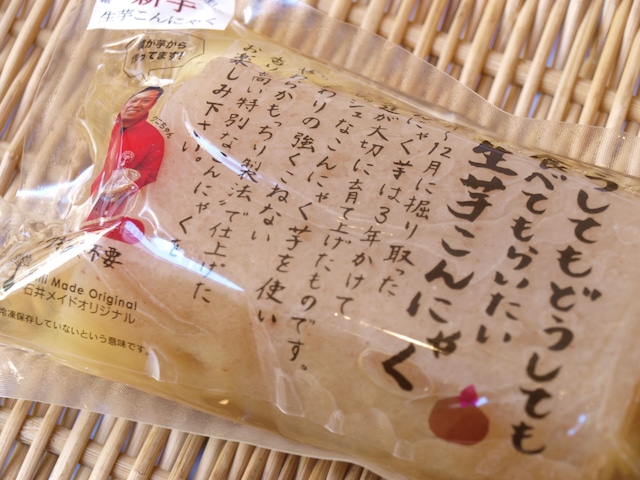 新芋
生芋こんにゃく
うしてもどうしても
べてもらいたい
生芋こんにゃく
12月に掘り取った
にゃく芋は3年かけて
が大切に育て上げたものです。
なこんにゃく芋を使い
わりの強くこねない
らかもっちり製法で仕上げた
高い特別なこんにゃくを
お楽しみ下さい。
芋から
ってます!
不要
Made Original
石井メイドオリジナル
冷凍保存していないという意味です。